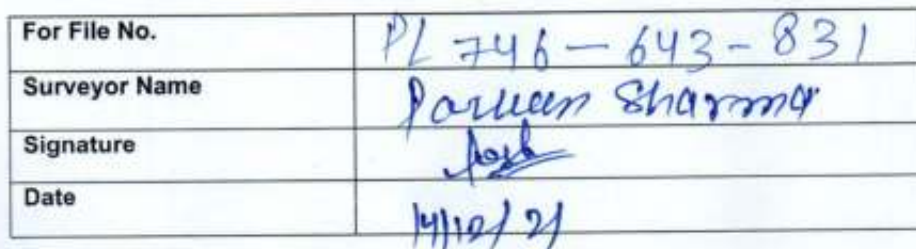 For File No. PL 746-643-831
Surveyor Name Parveen Sharma
Signature
Date 14/10/21